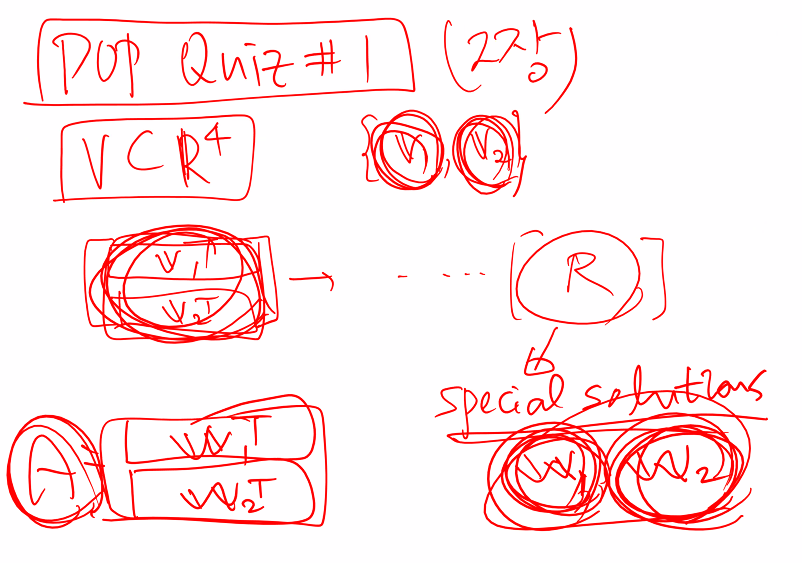 POP Quiz #1 (2장)
V ⊂ R⁴ {v₁, v₂}
[v₁ᵀ v₂ᵀ] → - ···· [R]
special solutions
A = [w₁ᵀ w₂ᵀ] w₁ w₂